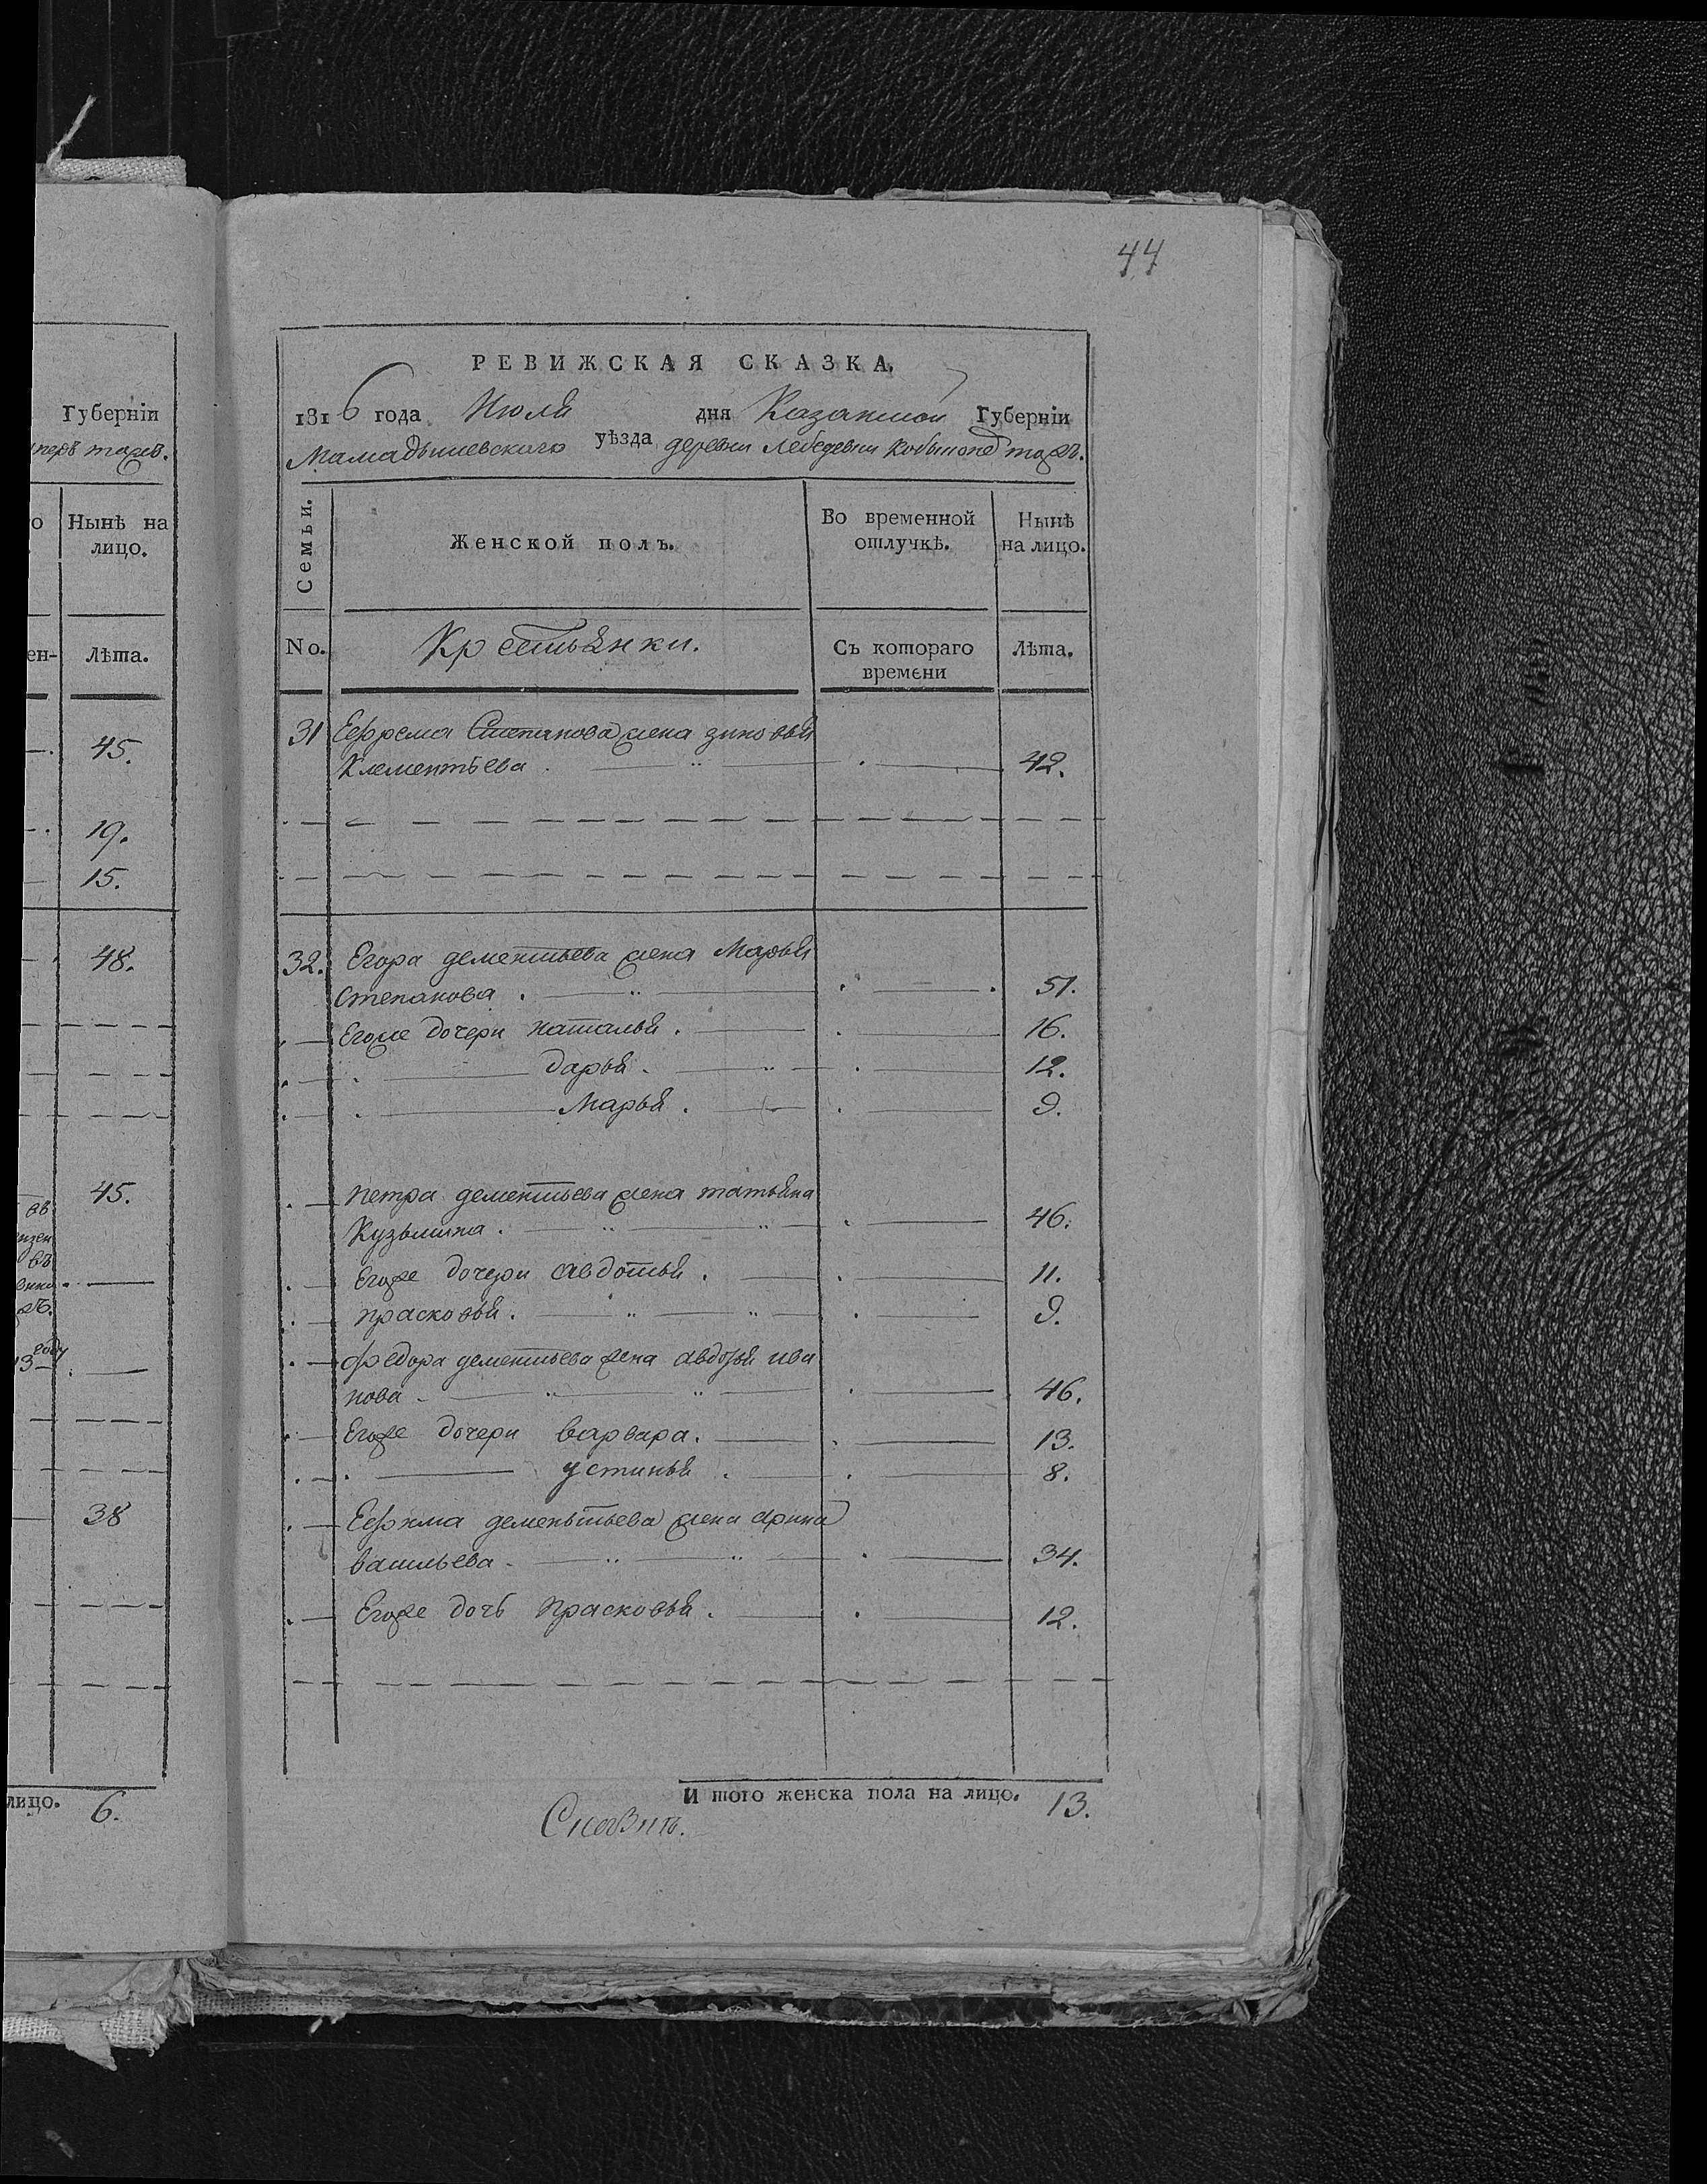 44
Губерніи
тожъ.
Нынѣ на
лицо.
Лѣта.
45.
19.
15.
48.
45.
38
лицо. 6.
РЕВИЖСКАЯ СКАЗКА,
1816 года Июля дня Казанской Губерніи
Мамадышевского уѣзда деревни Лебедевки тожъ.
Семьи.
Женской полъ.
Во временной
отлучкѣ.
Нынѣ
на лицо.
No.
Крестьянки.
Съ котораго
времени
Лѣта.
31 Ефрема Степанова жена зиновья
Клементьева . 42.
32. Егора дементьева жена Марья
степанова . 51.
Егоже дочери наталья . 16.
дарья . 12.
Марья . 9.
петра дементьева жена татьяна
Кузьмина . 46.
Егоже дочери авдотья . 11.
прасковья . 9.
федора дементьева жена авдотья ива
нова 46.
Егоже дочери варвара . 13.
устинья . 8.
Ефима дементьева жена арина
васильева 34.
Егоже дочь прасковья . 12.
И того женска пола на лицо. 13.